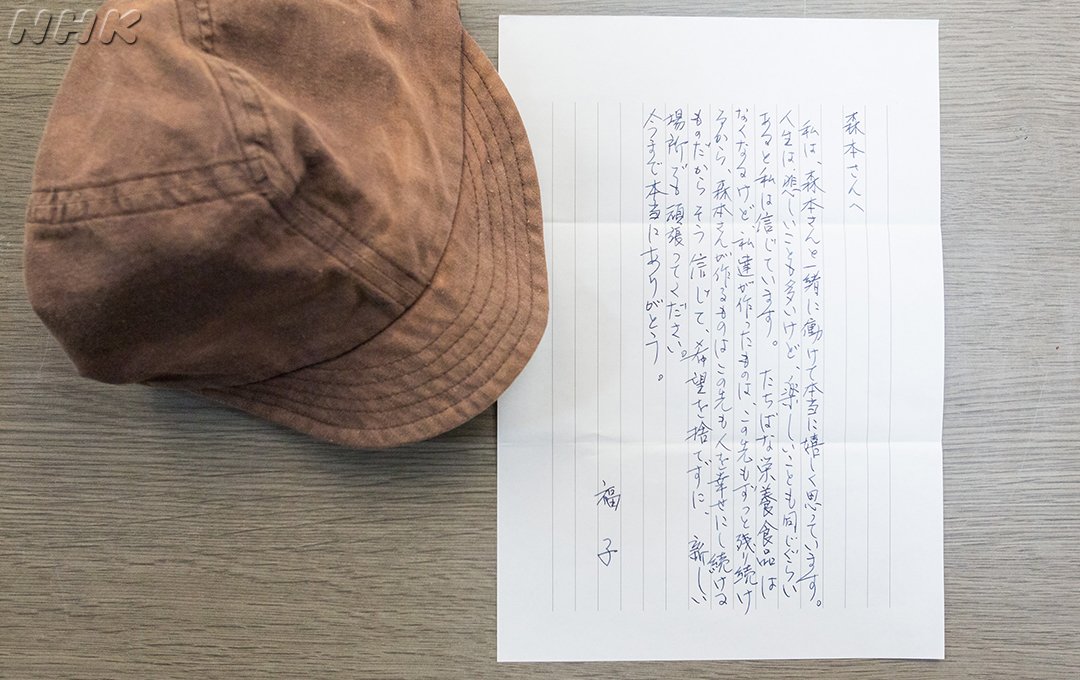 NHK
森本さんへ
私は、森本さんと一緒に働けて本当に嬉しく思っています。
人生は悲しいことも多いけど、楽しいことも同じぐらい
あると私は信じています。たちばな栄養食品は
なくなるけど、私達が作ったものは、この先もずっと残り続け
るから、森本さんが作るものはこの先も人を幸せにし続ける
ものだからそう信じて、希望を捨てずに、新しい
場所でも頑張ってください。
今まで本当にありがとう。
福子